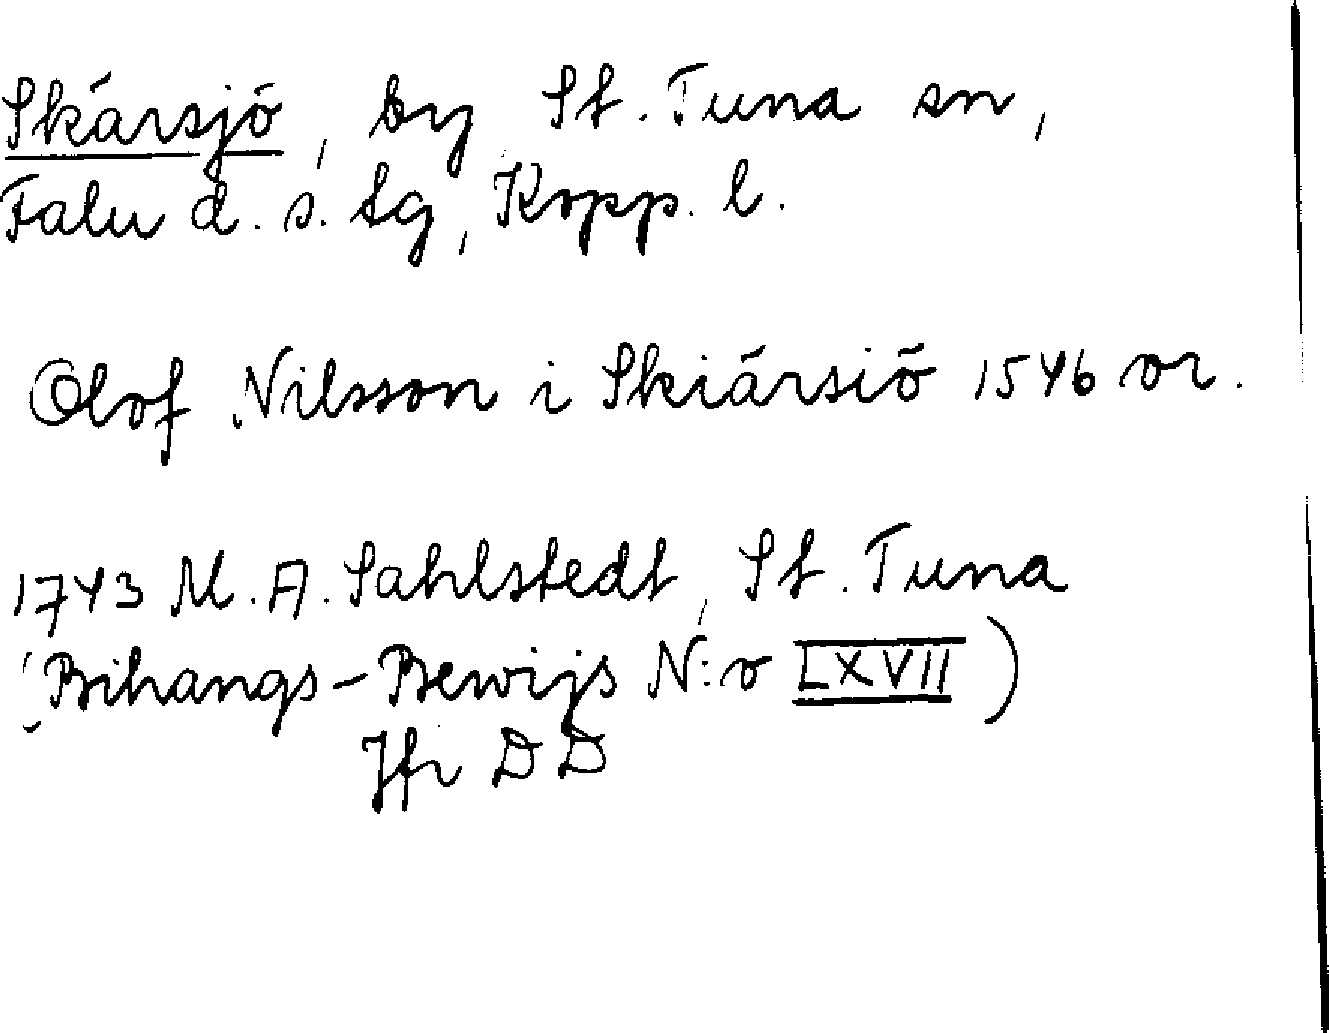 Skärsjö, by St. Tuna sn,
Falu d. s. tg, Kopp. l.
Olof Nilsson i Skiärsiö 1546 or.
1743 M. A. Sahlstedt, St. Tuna
(Bihangs-Bewijs N:o LXVII)
Jfr DD